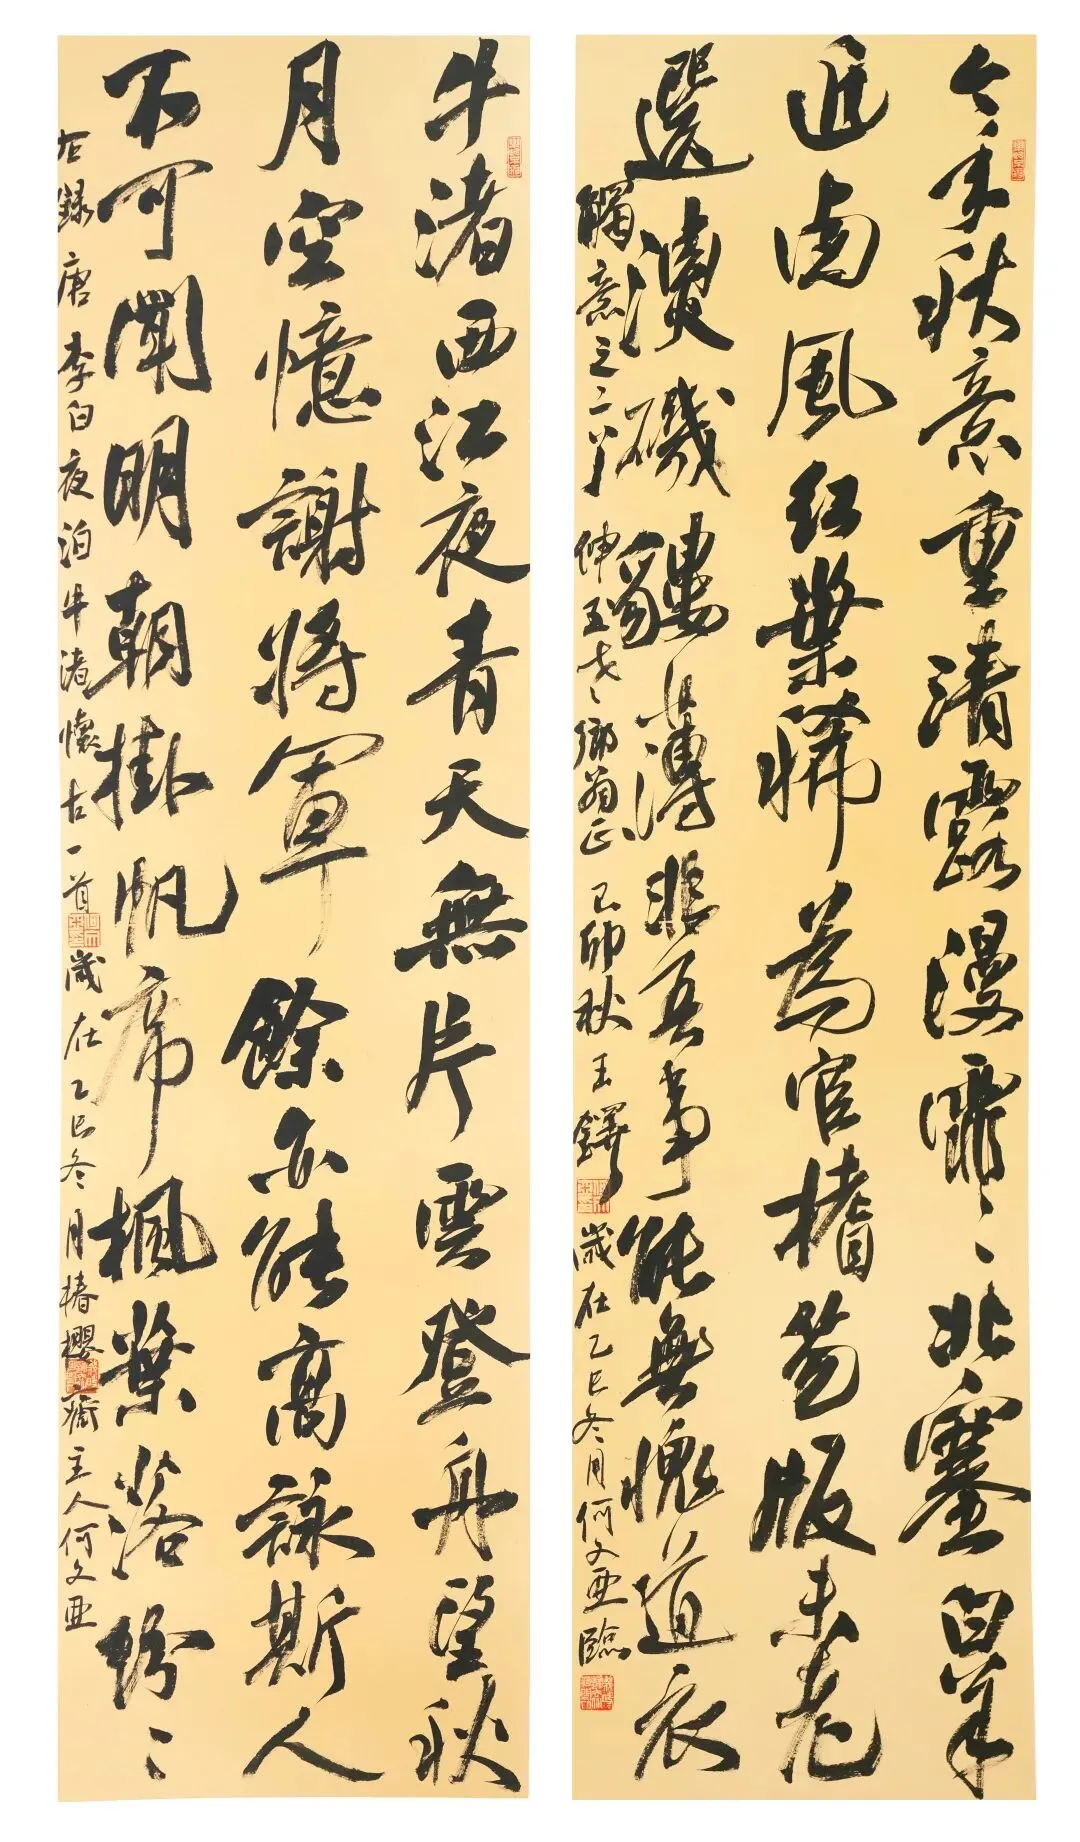 今年秋意重清露漫霏〻北塞白
近南風紅葉稀為官楮笏版未老
選磯薄悲吾事能無愧道衣
觸意之二 坤五老〻鄉翁正 己卯秋王鐸 歲在乙巳冬月何文亞臨
牛渚西江夜青天無片雲登舟望秋
月空憶謝將軍餘亦能高詠斯人
不可聞明朝掛帆席楓葉落紛〻
右錄唐李白夜泊牛渚懷古一首 歲在乙巳冬月椿櫻齋主人何文亞